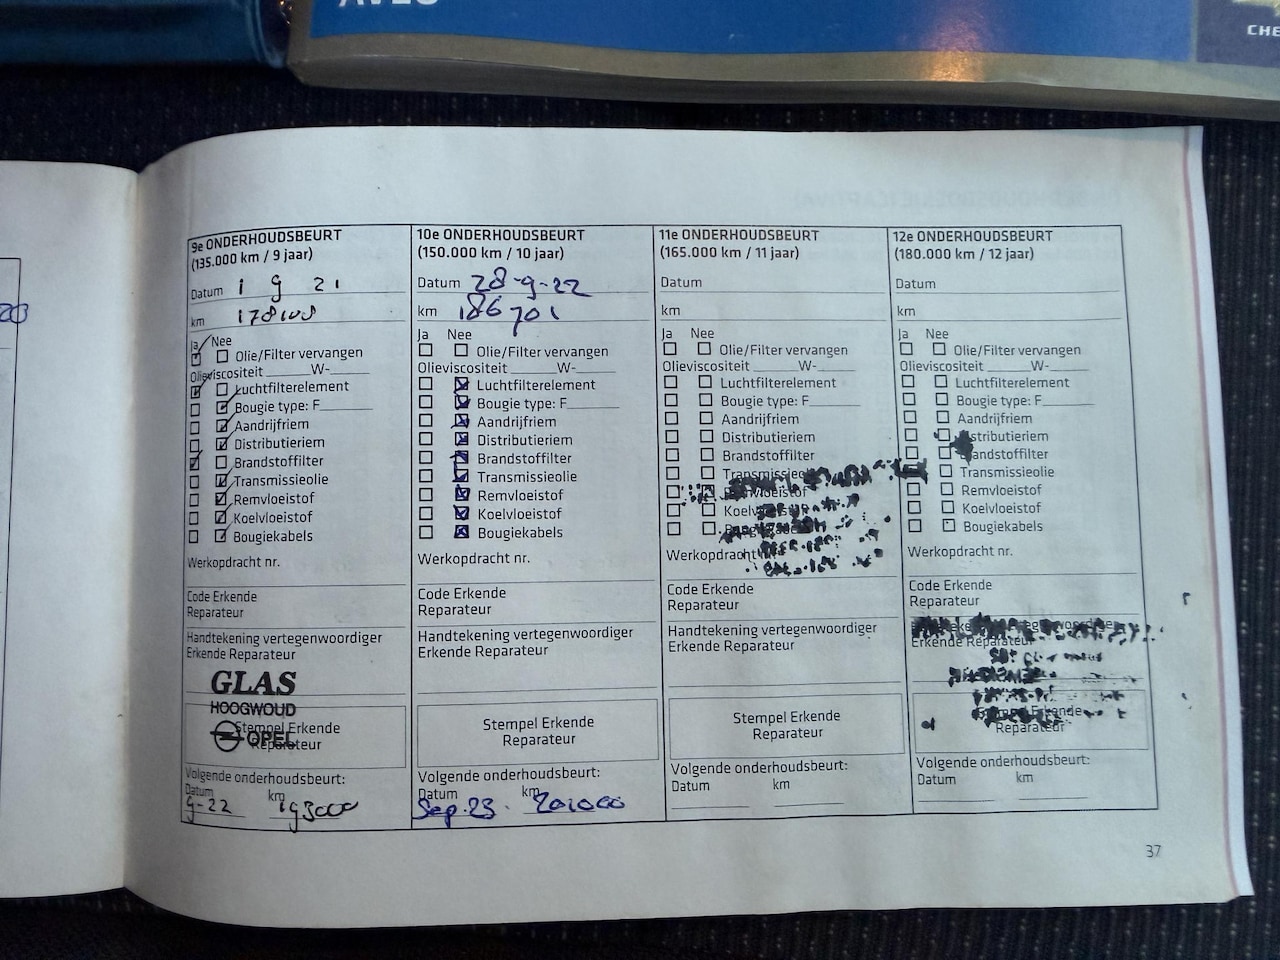 CHE
9e ONDERHOUDSBEURT
(135.000 km / 9 jaar)
Datum 1 9 21
km 178108
Ja Nee
Olie/Filter vervangen
Olieviscositeit W-
Luchtfilterelement
Bougie type: F
Aandrijfriem
Distributieriem
Brandstoffilter
Transmissieolie
Remvloeistof
Koelvloeistof
Bougiekabels
Werkopdracht nr.
Code Erkende
Reparateur
Handtekening vertegenwoordiger
Erkende Reparateur
GLAS
HOOGWOUD
OPEL
Stempel Erkende
Reparateur
Volgende onderhoudsbeurt:
Datum km
9-22 193000
10e ONDERHOUDSBEURT
(150.000 km / 10 jaar)
Datum 28-9-22
km 186701
Ja Nee
Olie/Filter vervangen
Olieviscositeit W-
Luchtfilterelement
Bougie type: F
Aandrijfriem
Distributieriem
Brandstoffilter
Transmissieolie
Remvloeistof
Koelvloeistof
Bougiekabels
Werkopdracht nr.
Code Erkende
Reparateur
Handtekening vertegenwoordiger
Erkende Reparateur
Stempel Erkende
Reparateur
Volgende onderhoudsbeurt:
Datum km
Sep.23. 201000
11e ONDERHOUDSBEURT
(165.000 km / 11 jaar)
Datum
km
Ja Nee
Olie/Filter vervangen
Olieviscositeit W-
Luchtfilterelement
Bougie type: F
Aandrijfriem
Distributieriem
Brandstoffilter
Transmissieolie
Remvloeistof
Werkopdracht
Code Erkende
Reparateur
Handtekening vertegenwoordiger
Erkende Reparateur
Stempel Erkende
Reparateur
Volgende onderhoudsbeurt:
Datum km
12e ONDERHOUDSBEURT
(180.000 km / 12 jaar)
Datum
km
Ja Nee
Olie/Filter vervangen
Olieviscositeit W-
Luchtfilterelement
Bougie type: F
Aandrijfriem
Distributieriem
Brandstoffilter
Transmissieolie
Remvloeistof
Koelvloeistof
Bougiekabels
Werkopdracht nr.
Code Erkende
Reparateur
Erkende Reparateur
Reparateur
Volgende onderhoudsbeurt:
Datum km
37